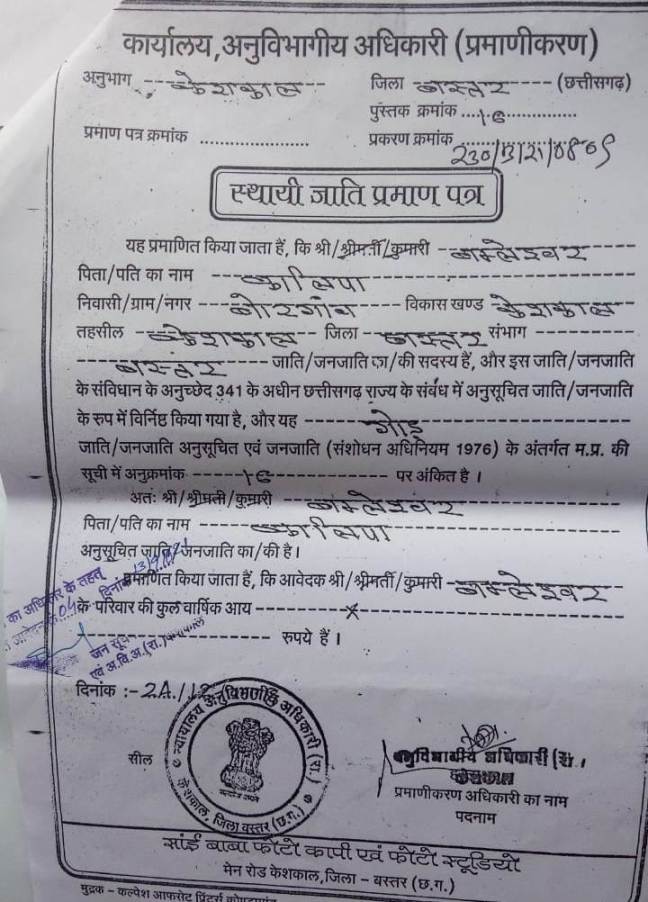 कार्यालय,अनुविभागीय अधिकारी (प्रमाणीकरण)
अनुभाग केशकाल जिला बस्तर (छत्तीसगढ़)
पुस्तक क्रमांक 16
प्रमाण पत्र क्रमांक प्रकरण क्रमांक
स्थायी जाति प्रमाण पत्र
यह प्रमाणित किया जाता हैं, कि श्री/श्रीमती/कुमारी कमलेश्वर
पिता/पति का नाम
निवासी/ग्राम/नगर बोरगांव विकास खण्ड केशकाल
तहसील केशकाल जिला बस्तर संभाग
बस्तर जाति/जनजाति का/की सदस्य हैं, और इस जाति/जनजाति
के संविधान के अनुच्छेद 341 के अधीन छत्तीसगढ़ राज्य के संबंध में अनुसूचित जाति/जनजाति
के रुप में विर्निष्ठ किया गया है, और यह गोड़
जाति/जनजाति अनुसूचित एवं जनजाति (संशोधन अधिनियम 1976) के अंतर्गत म.प्र. की
सूची में अनुक्रमांक 16 पर अंकित है ।
अतः श्री/श्रीमती/कुमारी कमलेश्वर
पिता/पति का नाम
अनुसूचित जाति/जनजाति का/की है।
प्रमाणित किया जाता हैं, कि आवेदक श्री/श्रीमती/कुमारी कमलेश्वर
के परिवार की कुल वार्षिक आय
रुपये हैं ।
का अधिकार के तहत्
दिनांक
जन सूच
एवं अ.वि.अ.(रा.) केशकाल
दिनांक :-
सील
न्यायालय अनुविभागीय अधिकारी (रा.)
केशकाल, जिला बस्तर (छ.ग.)
अनुविभागीय अधिकारी (रा.)
केशकाल
प्रमाणीकरण अधिकारी का नाम
पदनाम
सांई बाबा फोटो कापी एवं फोटो स्टूडियो
मेन रोड केशकाल,जिला - बस्तर (छ.ग.)
मुद्रक - कल्पेश आफसेट प्रिंटर्स कोण्डागांव